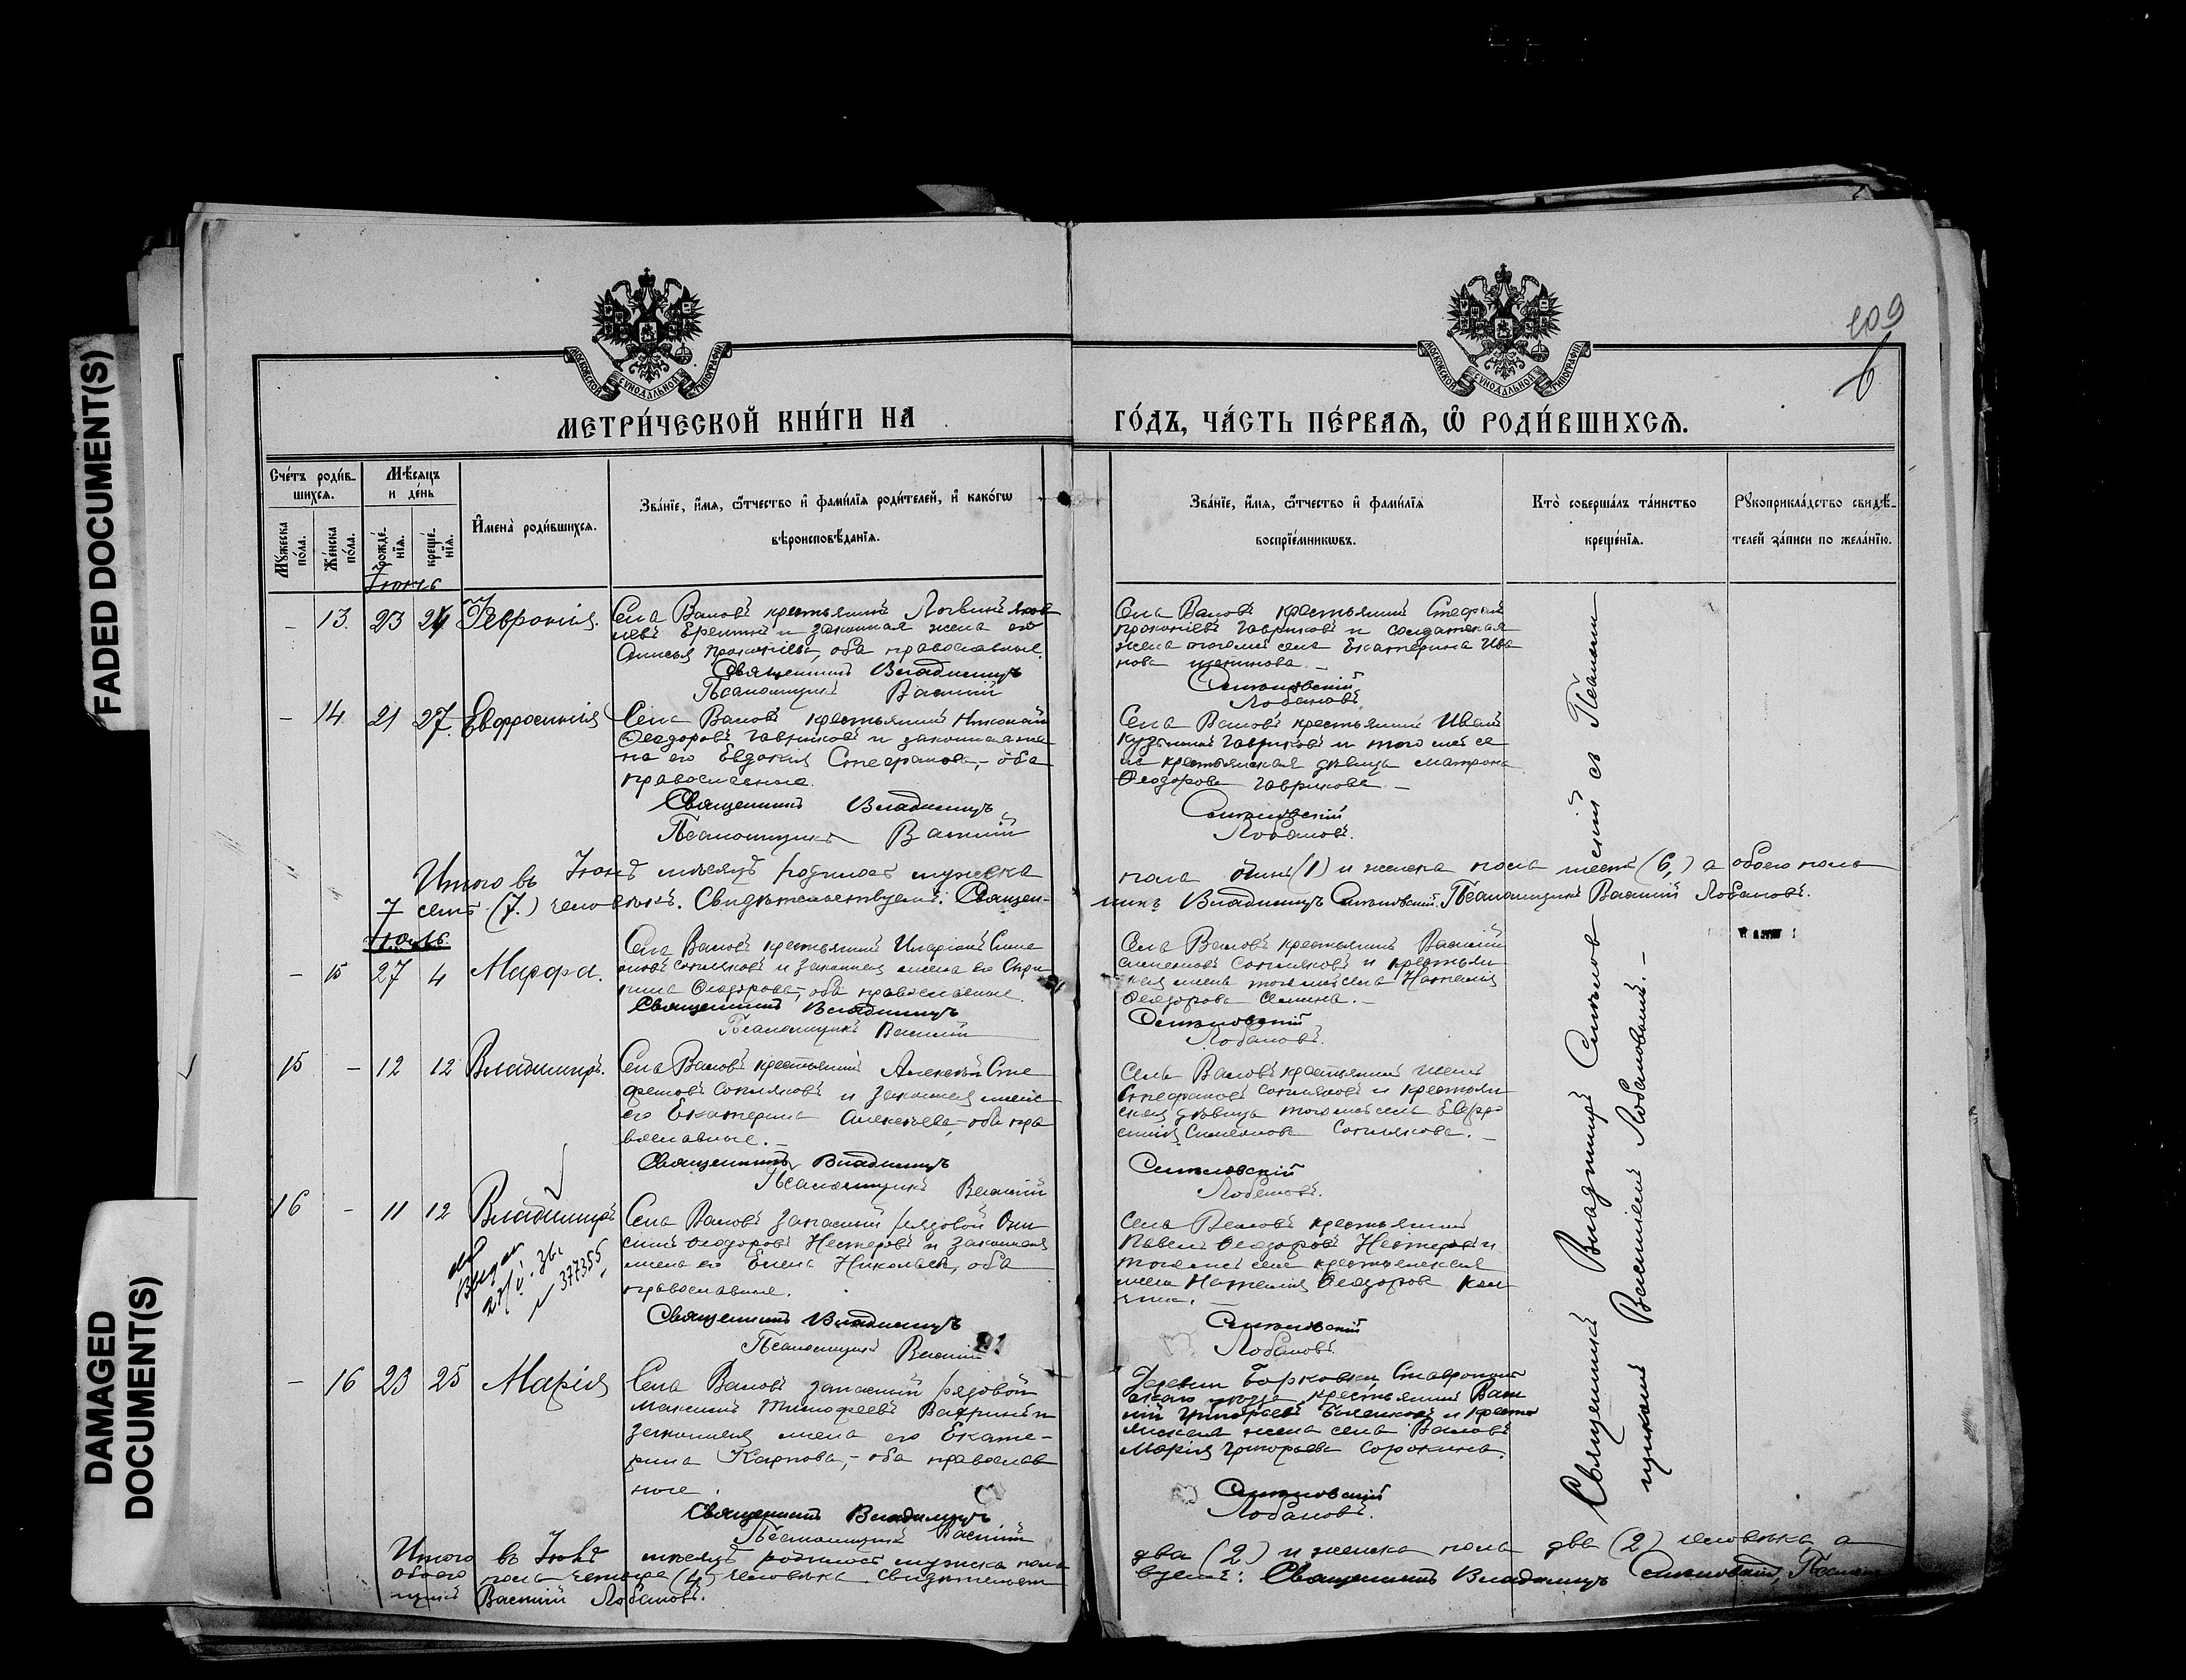 FADED DOCUMENT(S)
DAMAGED
DOCUMENT(S)
109
6
МОСКОВСКОЙ СѴНОДАЛЬНОЙ ТИПОГРАФІИ
МОСКОВСКОЙ СѴНОДАЛЬНОЙ ТИПОГРАФІИ
МЕТРИ́ЧЕСКОЙ КНИ́ГИ НА ГО́ДЪ, ЧА́СТЬ ПЕ́РВАѦ, Ѽ РОДИ́ВШИХСѦ.
Сче́тъ роди́в-
шихсѧ.
Мѣ́сѧцъ
и де́нь
Мꙋжеска
по́ла.
Же́нска
по́ла.
рожде́-
нїѧ.
креще́-
нїѧ.
И҆мена̀ роди́вшихсѧ.
Зва́нїе, и҆́мѧ, ѻ҆́тчество и҆ фами́лїѧ роди́телей, и҆ како́гѡ
вѣроисповѣ́данїѧ.
Зва́нїе, и҆́мѧ, ѻ҆́тчество и҆ фами́лїѧ
воспрїе́мникѡвъ.
Кто̀ соверша́лъ та́инство
креще́нїѧ.
Рꙋкоприкла́дство свидѣ́-
телей за́писи по жела́нїю.
Іюнь
- 13. 23 24 Февронія.
Села Валовъ крестьянинъ Логвинъ Яков
левъ Еремкинъ и законная жена его
Анисья Прокопіева, оба православные.
Священникъ Владимиръ
Псаломщикъ Василій
Села Валовъ крестьянинъ Стефанъ
Прокопіевъ Гавриковъ и солдатская
жена тогоже села Екатерина Ива
нова
Ситновскій
Лобановъ.
- 14 21 27. Евфросинія
Села Валовъ крестьянинъ Николай
Ѳеодоровъ Гавриковъ и законная же
на его Евдокія Стефанова, - оба
православные.
Священникъ Владимиръ
Псаломщикъ Василій
Села Валовъ крестьянинъ Иванъ
Кузьминъ Гавриковъ и того же се
ла крестьянская дѣвица Матрона
Ѳеодорова Гаврикова -
Ситновскій
Лобановъ.
Итого въ Іюнѣ мѣсяцѣ родилось мужска пола одинъ (1) и женска пола шесть (6,) а обоего пола
7 семь (7.) человѣкъ. Свидѣтельствуемъ: Священ-
никъ Владимиръ Ситновскій. Псаломщикъ Василій Лобановъ.
Іюль
- 15 27 4 Марфа.
Села Валовъ крестьянинъ Иларіонъ Симе
оновъ и законная жена его Ири
Ѳеодорова, оба православные.
Священникъ Владимиръ
Псаломщикъ Василій
Села Валовъ крестьянинъ Василій
Симеоновъ и крестьян
ская жена тогоже села Наталія
Ѳеодорова
Ситновскій
Лобановъ.
15 - 12 12 Владимиръ.
Села Валовъ крестьянинъ Алексѣй Сте
фановъ и законная жена
его Екатерина Алексѣева, - оба пра
вославные. -
Священникъ Владимиръ
Псаломщикъ Василій
Села Валовъ крестьянинъ
Стефановъ и крестьян
ская дѣвица тогоже села Евфро
синія Симеонова
Ситновскій
Лобановъ.
16 - 11 12 Владимиръ
27/V. 36г.
№ 377355
Села Валовъ запасный рядовой Они
симъ Ѳеодоровъ Нестеровъ и законная
жена его Елена Николаева, оба
православные.
Священникъ Владимиръ
Псаломщикъ Василій
Села Валовъ крестьянинъ
Павелъ Ѳеодоровъ Нестеровъ и
тогоже села крестьянская
жена Наталія Ѳеодорова
Ситновскій
Лобановъ.
- 16 23 25 Марія
Села Валовъ запасный рядовой
Максимъ Тимоѳеевъ и
законная жена его Екате-
рина Карпова, - оба православ
ные.
Священникъ Владимиръ
Псаломщикъ Василій
Деревни Борковки Ставрополь
скаго уѣзда крестьянинъ Васи
лій Григорьевъ и кресть
янская жена села Валовъ
Марія Григорьева Сорокина.
Ситновскій
Лобановъ.
Священникъ Владимиръ Ситновскій съ Псалом
щикомъ Василіемъ Лобановымъ. -
Итого въ Іюлѣ мѣсяцѣ родилось мужска пола два (2) и женска пола два (2) человѣка а
обоего пола четыре (4) человѣка. Свидѣтельст
вуемъ: Священникъ Владимиръ Ситновскій, Псалом
щикъ Василій Лобановъ.